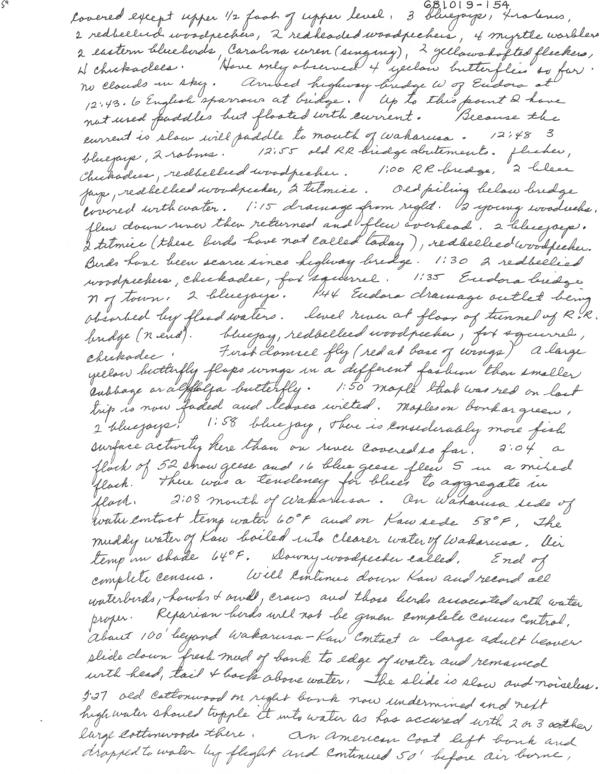 681019-154
covered except upper 1/2 foot of upper level. 3 bluejays, 4 robins,
2 redbellied woodpeckers, 2 redheaded woodpeckers, 4 myrtle warblers
2 eastern bluebirds, Carolina wren (singing), 2 yellowshafted flickers,
4 chickadees. Have only observed 4 yellow butterflies so far.
no clouds in sky. Arrived highway bridge W of Eudora at
12:43. 6 English sparrows at bridge. Up to this point I have
not used paddles but floated with current. Because the
current is slow will paddle to mouth of Wakarusa. 12:48 3
bluejays, 2 robins. 12:55 old RR bridge abutments. flicker,
Chickadees, redbellied woodpecker. 1:00 RR bridge, 2 blue
jays, redbellied woodpecker, 2 titmice. Old piling below bridge
covered with water. 1:15 drainage from right. 2 young woodducks
flew down river then returned and flew overhead. 2 bluejays.
2 titmice (these birds have not called today), redbellied woodpecker.
Birds have been scarce since highway bridge. 1:30 2 redbellied
woodpeckers, chickadee, fox squirrel. 1:35 Eudora bridge
N of town. 2 bluejays. 1:44 Eudora drainage outlet being
absorbed by flood waters. Level river at floor of tunnel of R.R.
bridge (N end). bluejay, redbellied woodpecker, fox squirrel,
chickadee. First damsel fly (red at base of wings) A large
yellow butterfly flaps wings in a different fashion than smaller
cabbage or alfalfa butterfly. 1:50 maple that was red on last
trip is now faded and leaves wilted. Maples on bank are green,
2 bluejays. 1:58 bluejay, there is considerably more fish
surface activity here than on river covered so far. 2:04 a
flock of 52 snow geese and 16 blue geese flew S in a mixed
flock. There was a tendency for blues to aggregate in
flock. 2:08 mouth of Wakarusa. On Wakarusa side of
water contact temp water 60°F and on Kaw side 58°F. The
muddy water of Kaw boiled into clearer water of Wakarusa. Air
temp in shade 64°F. Downy woodpecker called. End of
complete census. Will continue down Kaw and record all
waterbirds, hawks & owls, crows and those birds associated with water
proper. Reparian birds will not be given complete census control.
About 100' beyond Wakarusa-Kaw contact a large adult beaver
slide down fresh mud of bank to edge of water and remained
with head, tail & back above water. The slide is slow and noiseless.
2:27 old cottonwood on right bank now undermined and next
high water should topple it into water as has occured with 2 or 3 other
large cottonwoods there. An American Coot left bank and
dropped to water by flight and continued 50' before air borne,